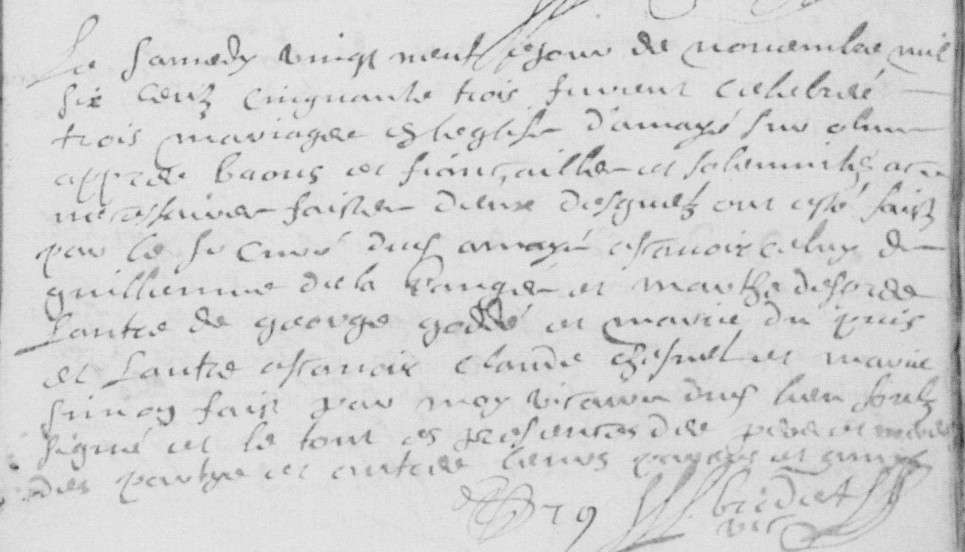 Le samedy vingt neuf jesour de novembre mil
six centz cinquante trois furent celebré
trois mariages en leglise d'amayé sur olne
appres bans et fiançailles et solemnitez
necessaires faistes deux desquelz ont esté faistz
par le sr curé dud amayé escavoir celuy de
guillemme de la et marthe desordes
Lautre de george goddé et marie du puis
et Lautre escavoir claude chesnel et marie
simon fait par moy vicaire dud lieu soubz
signé et le tout es presences des peres et meres
des partye et autres leurs parents et amys
bridet
vic